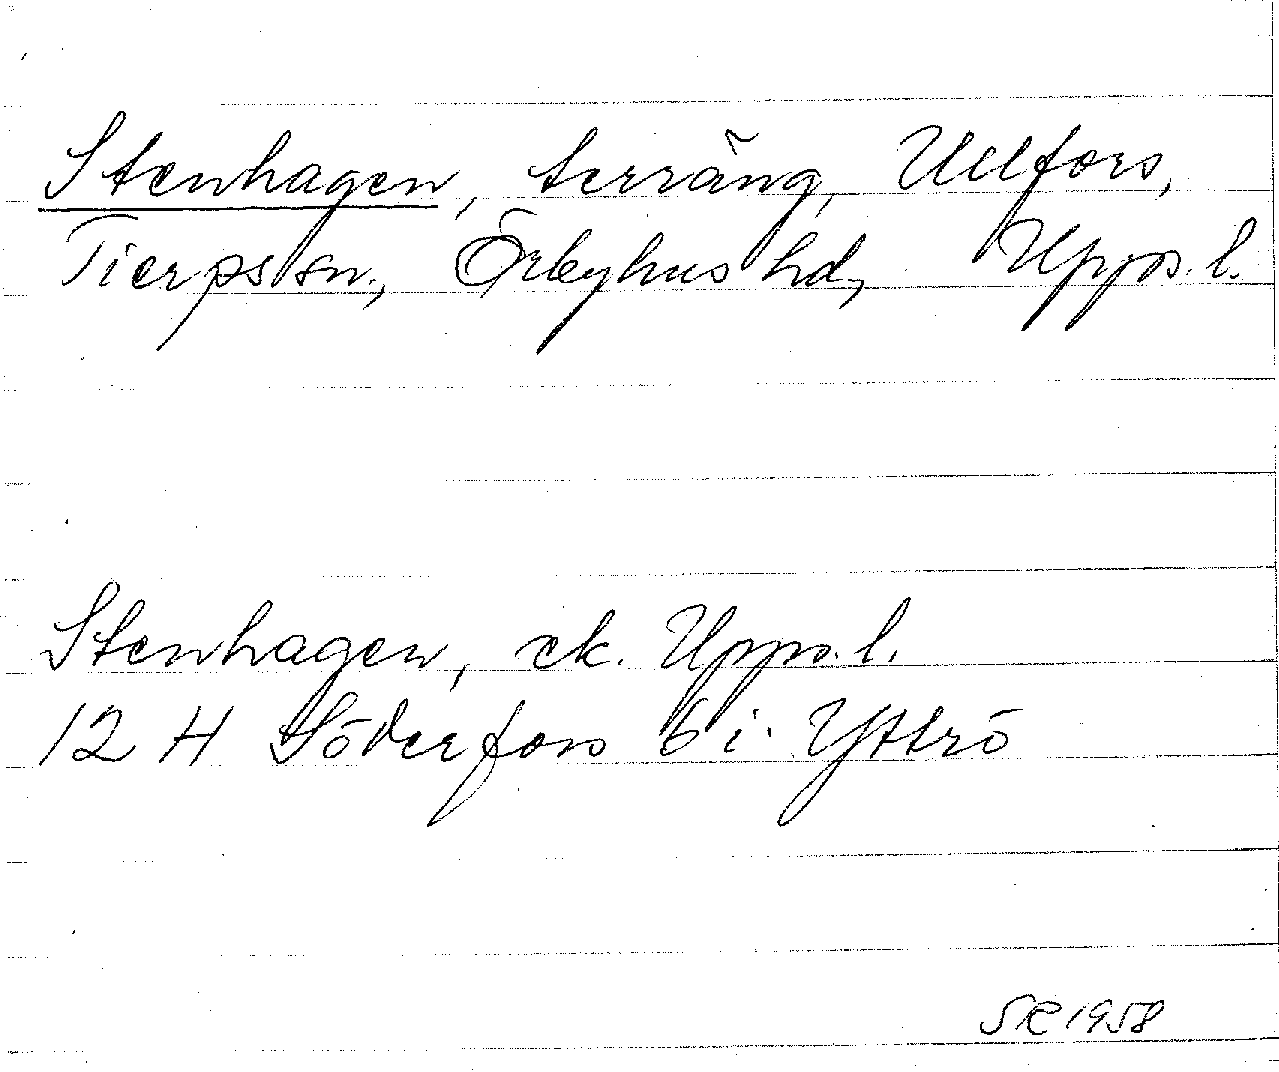 Stenhagen, terräng, Ullfors,
Tierps sn., Örbyhus hd, Upps. l.
Stenhagen, ek. Upps. l.
12 H Söderfors 6 i. Yttrö
SR 1958